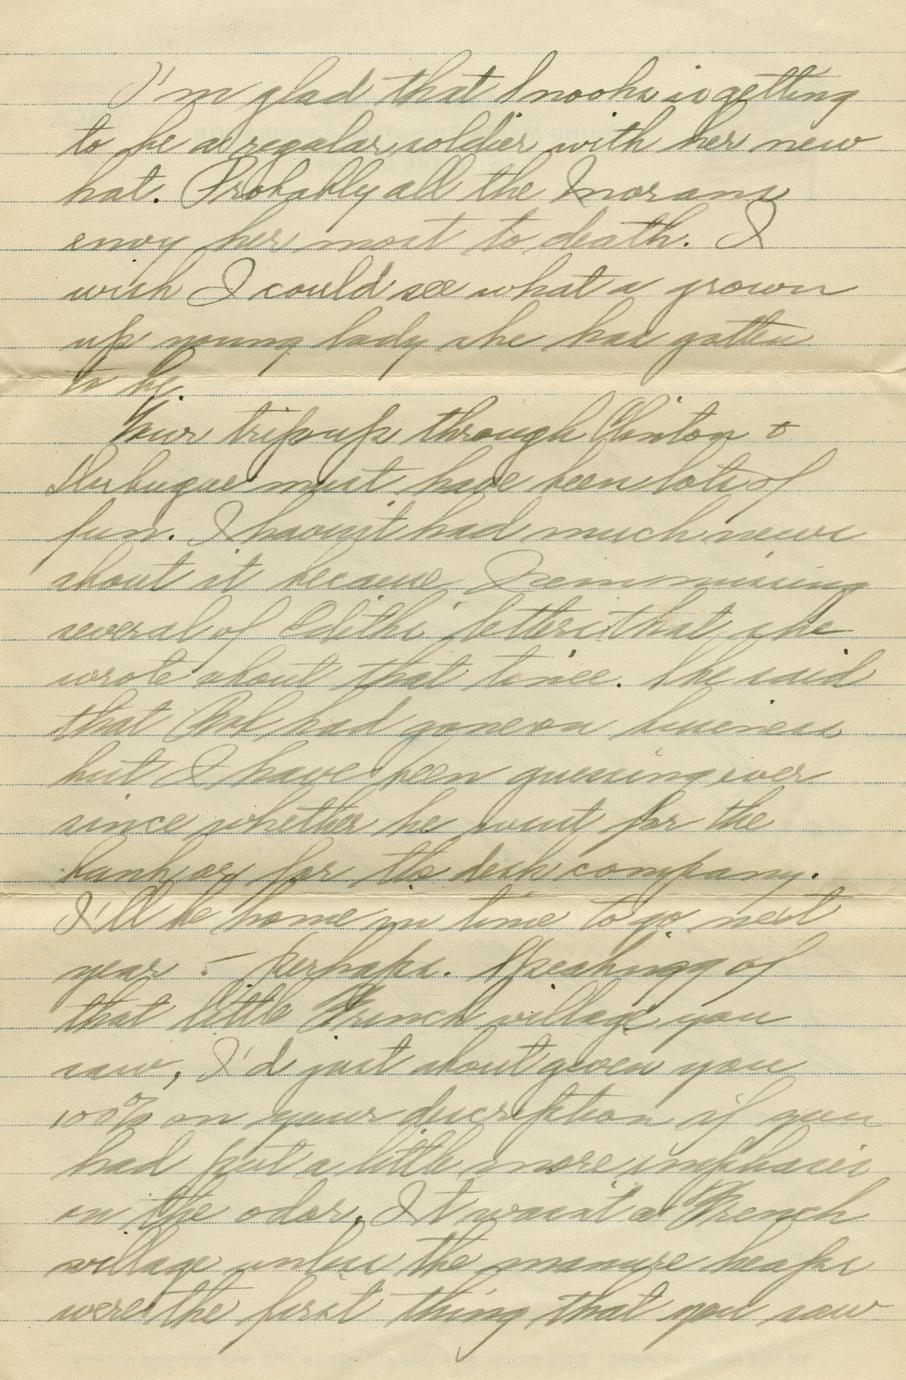 I'm glad that Snooks is getting
to be a regular soldier with her new
hat. Probably all the Morans
envy her most to death. I
wish I could see what a grown
up young lady she has gotten
to be.
Your trip up through Clinton &
Dubuque must have been lots of
fun. I haven't had much news
about it because I am missing
several of Edith's letters that she
wrote about that time. She said
that Bob had gone on business
but I have been guessing ever
since whether he went for the
bank or for the desk company.
I'll be home in time to go next
year – perhaps. Speaking of
that little French village you
saw, I'd just about given you
100% on your description if you
had put a little more emphasis
on the odor. It wasn't a French
village unless the manure heaps
were the first thing that you saw